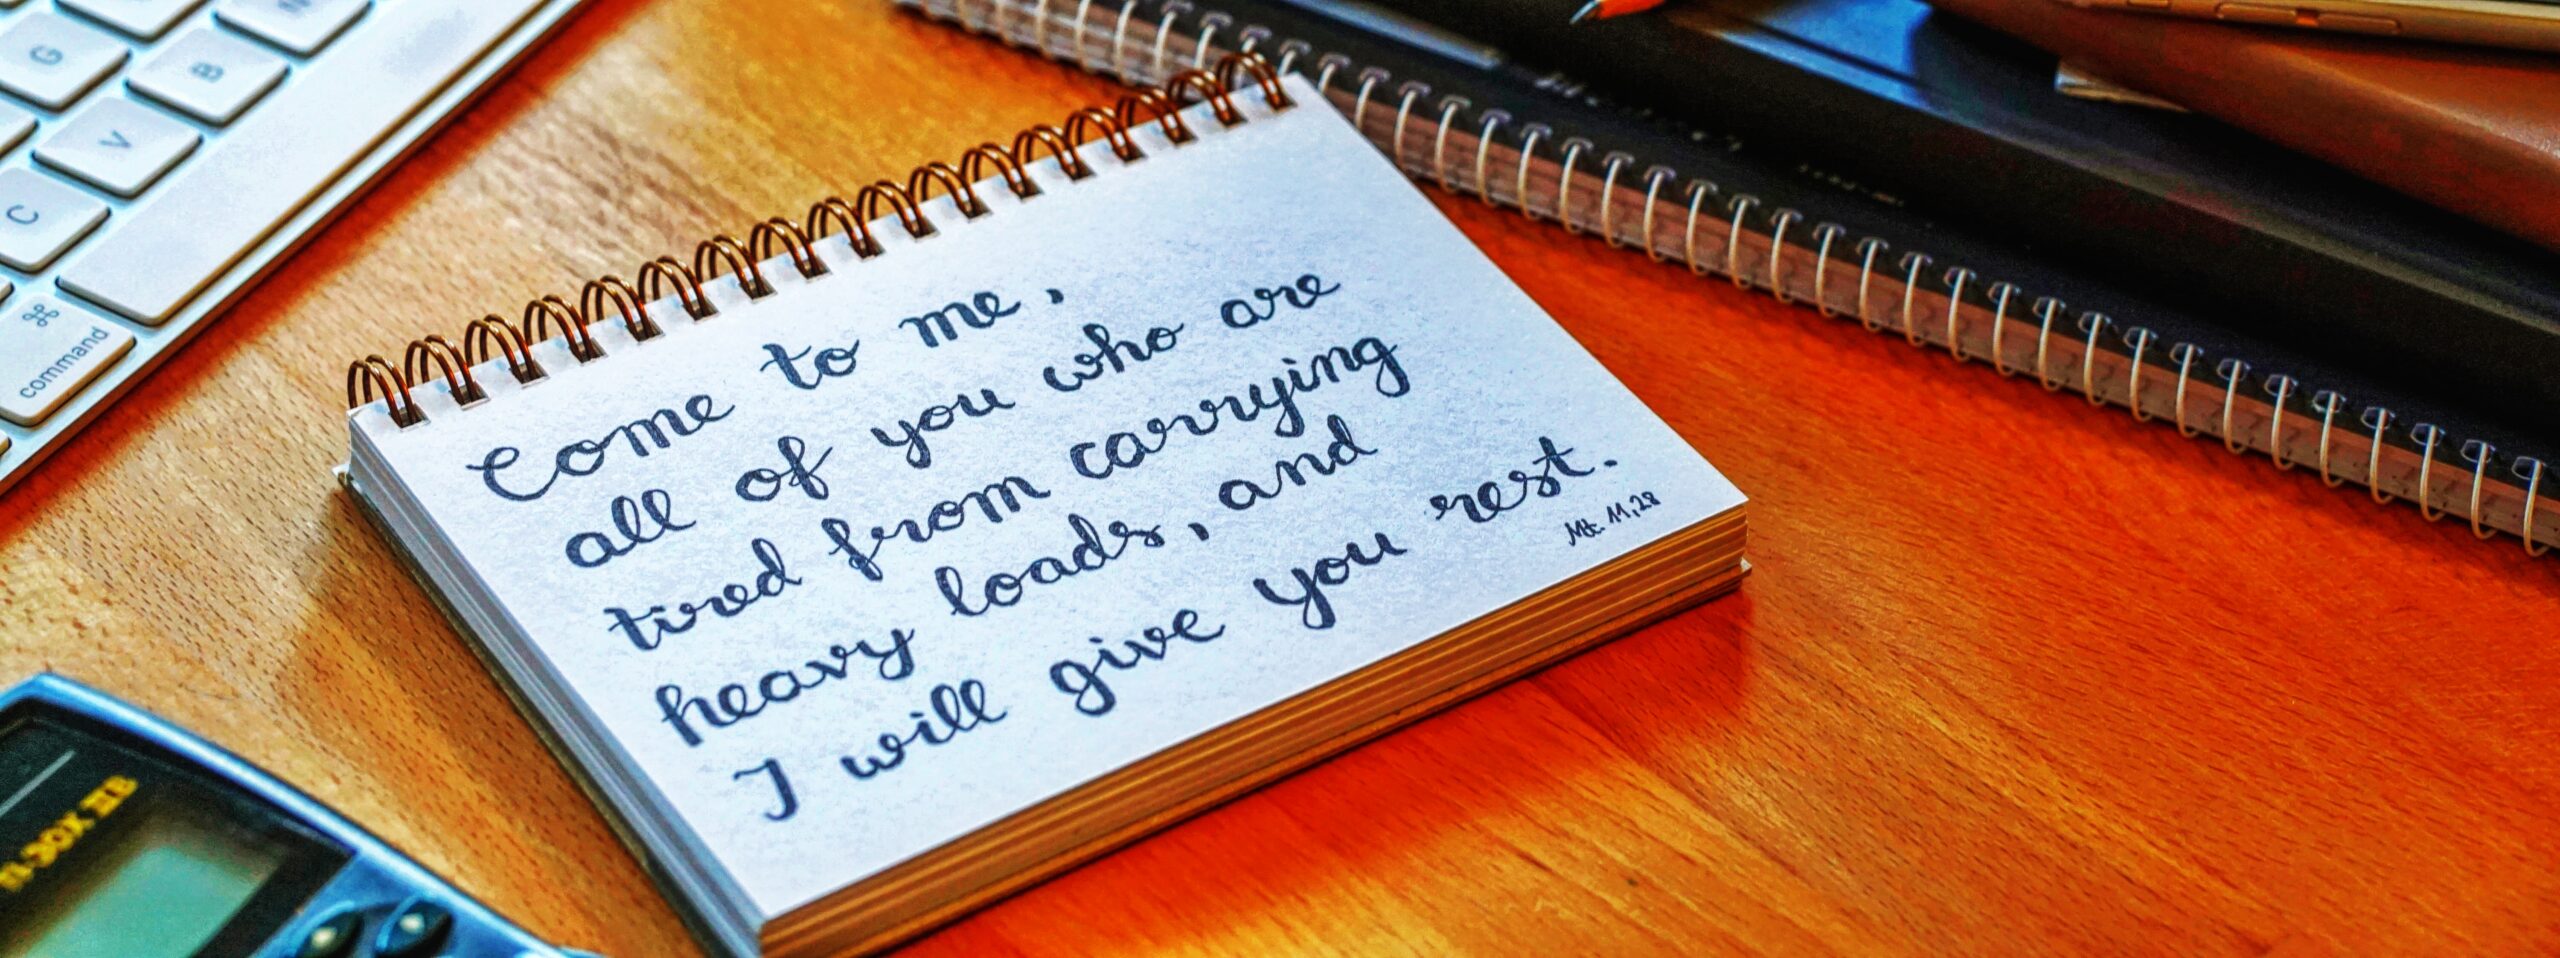 Come to me,
all of you who are
tired from carrying
heavy loads, and
I will give you rest.
Mt. 11,28
G
B
V
C
⌘
command